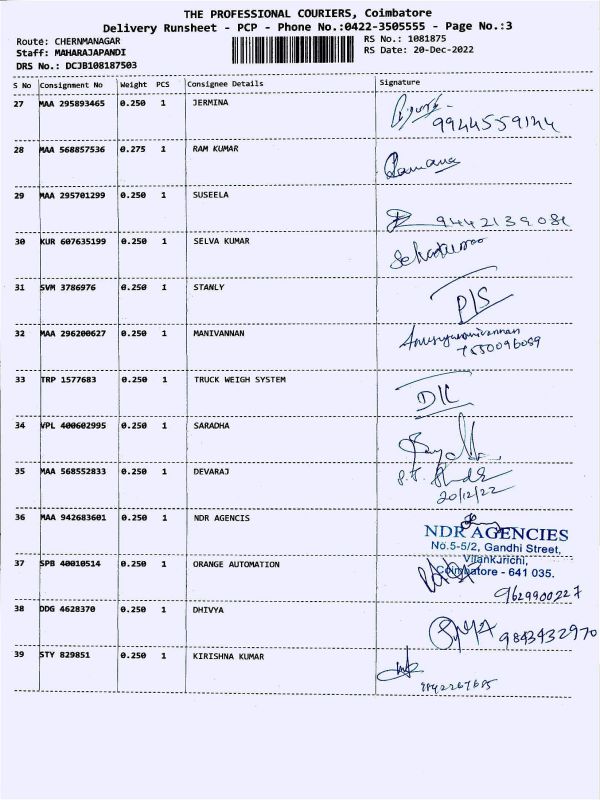 THE PROFESSIONAL COURIERS, Coimbatore
Delivery Runsheet - PCP - Phone No.:0422-3505555 - Page No.:3
Route: CHERNMANAGAR
RS No.: 1081875
Staff: MAHARAJAPANDI
RS Date: 20-Dec-2022
DRS No.: DCJB108187503
S No Consignment No Weight PCS Consignee Details Signature
27 MAA 295893465 0.250 1 JERMINA
9944559144
28 MAA 568857536 0.275 1 RAM KUMAR
Ramana
29 MAA 295701299 0.250 1 SUSEELA
9442139081
30 KUR 607635199 0.250 1 SELVA KUMAR
31 SVM 3786976 0.250 1 STANLY
D/S
32 MAA 296200627 0.250 1 MANIVANNAN
33 TRP 1577683 0.250 1 TRUCK WEIGH SYSTEM
34 VPL 400602995 0.250 1 SARADHA
35 MAA 568552833 0.250 1 DEVARAJ
20/12/22
36 MAA 942683601 0.250 1 NDR AGENCIS
NDR AGENCIES
No.5-5/2, Gandhi Street,
Vilankurichi,
Coimbatore - 641 035.
37 SPB 40010514 0.250 1 ORANGE AUTOMATION
9629900227
38 DDG 4628370 0.250 1 DHIVYA
9843432970
39 STY 829851 0.250 1 KIRISHNA KUMAR